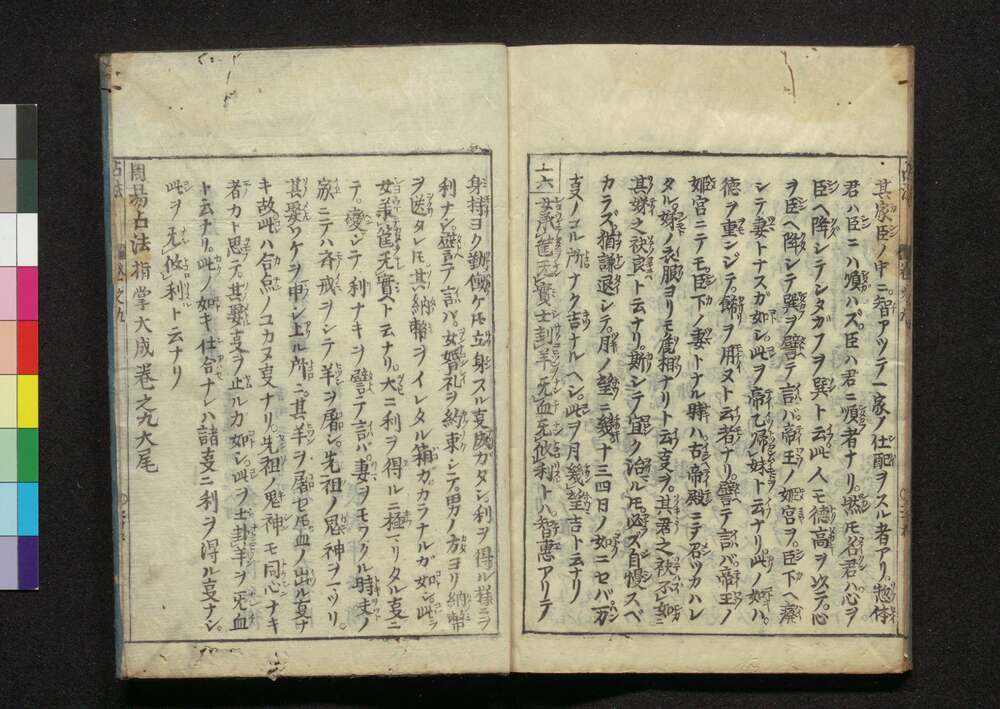 其家臣ノ中ニ智アツテ一家ノ仕配ヲスル者アリ。惣体
君ハ臣ニハ順ハズ。臣ハ君ニ順者ナリ。然モ名君ハ心ヲ
臣ヘ降シテシタガフヲ巽ト云。此人モ徳高ヲ以テ。心
ヲ臣ヘ降シテ巽ヲ譬テ言バ帝王ノ姫宮ヲ。臣下ヘ嫁
シテ妻トナスガ如シ。此ヲ帝乙帰妹ト云ナリ此ノ如ハ。
徳ヲ重ンジテ。餝ヲ用ヌト云者ナリ。譬テ言バ帝王ノ
姫宮ニテモ。臣下ノ妻トナル時ハ古帝殿ニテ召ツカハレ
タル娣ノ衣服ヨリモ麁相ナリト云事ヲ。其君之袂不如
其娣之袂良ト云ナリ。斯シテ宜ク治ルモ。必ズ自慢スベ
カラズ。猶謙退シテ。月ノ望ニ十三四日ノ如ニセバ。万
事トコル所ナク吉ナルヘシ。此ヲ月幾望吉ト云ナリ
上六 女承筐无實士刲羊无血无攸利トハ智恵アリテ
身持ヨク動働ケドモ立身スル事成ガタシ。利ヲ得ル様ニテ
利ナシ。譬テ言バ。女婚礼ヲ約束シテ。男ノ方ヨリ納幣
ヲ送タレドモ。其納幣ヲイレタル箱ガ。カラナルガ如シ。此ヲ
女承筐无實ト云ナリ。大ニ利ヲ得ルニ極リタル事ニ
テ。変シテ。利ナキヲ譬テ言バ。妻ヲモラル時。夫ノ
家ニテハ斉戒ヲシテ羊ヲ屠シ。先祖ノ鬼神ヲマツリ。
其娶ワケヲ申シ上ル所ニ。其羊ヲ屠セドモ。血ノ出ル事ナ
キ故。此ハ合点ノユカヌ事ナリ。先祖ノ鬼神モ同心ナキ
者カト思テ。其娶事ヲ止ルカ如シ。此ヲ士刲羊ヲ无血
ト云ナリ。此ノ如キ仕合ナレハ諸事ニ利ヲ得ル事ナシ。
此ヲ无攸利ト云ナリ
周易占法指掌大成巻之九大尾